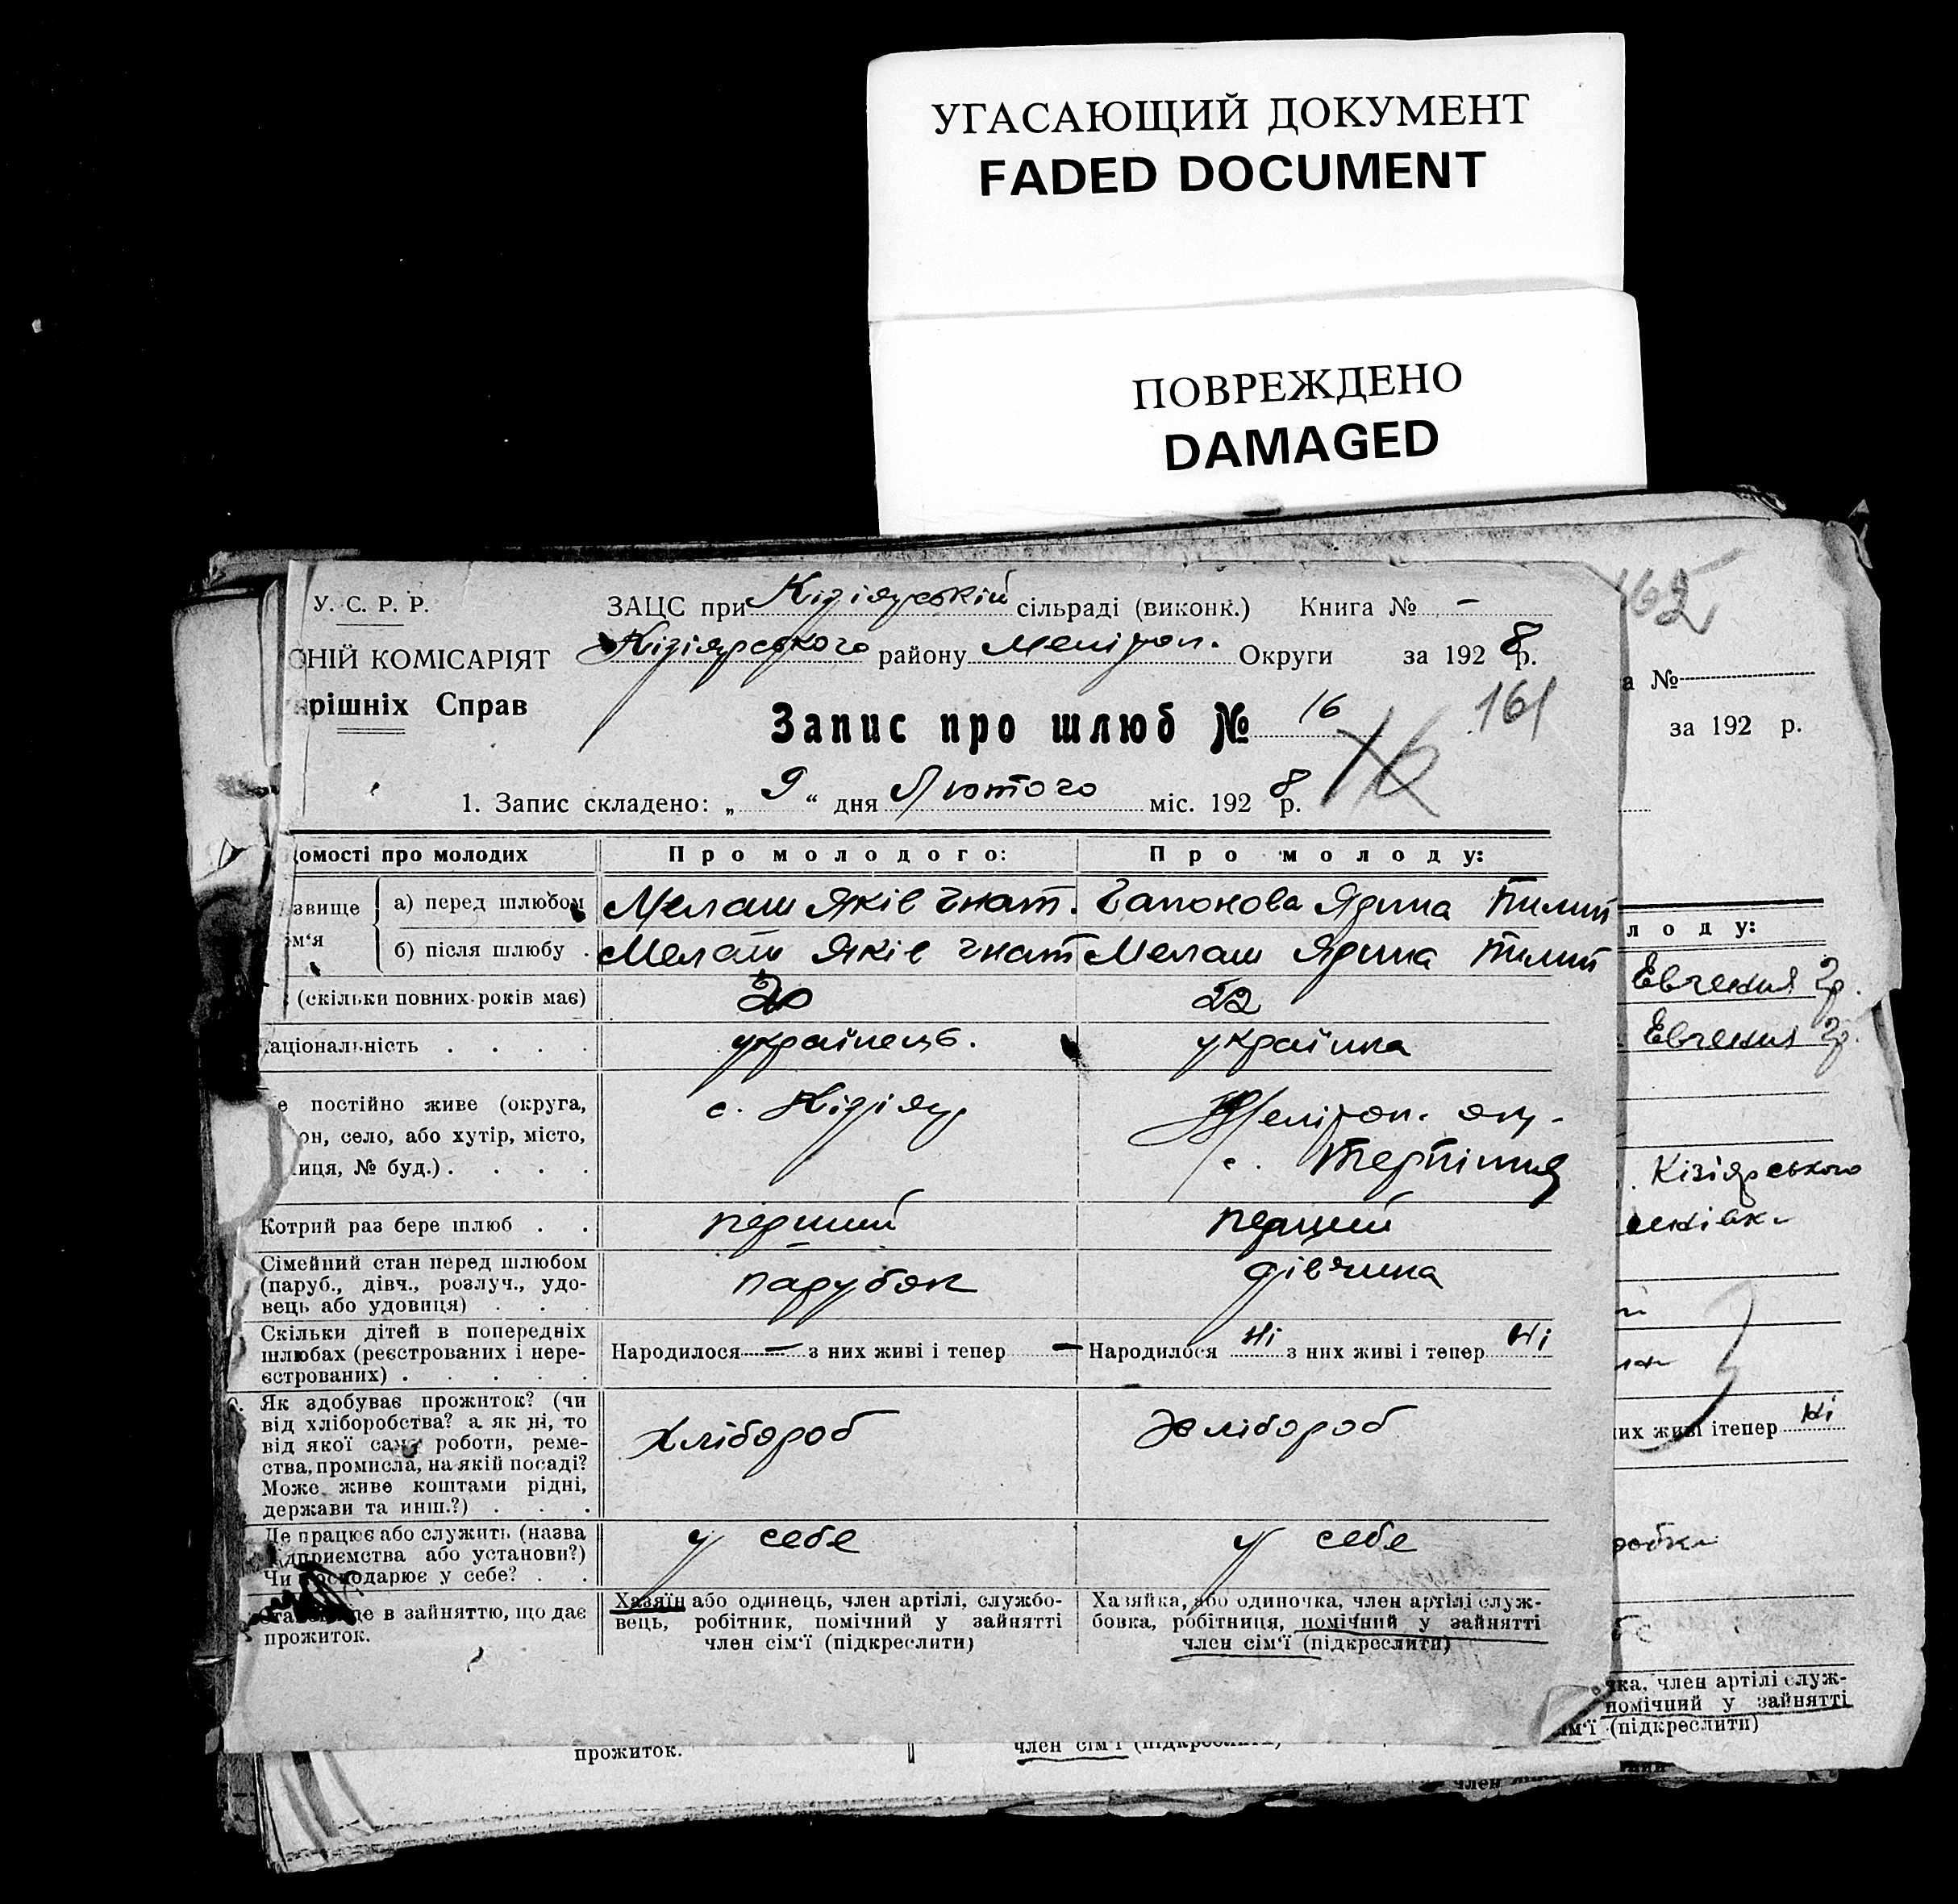 УГАСАЮЩИЙ ДОКУМЕНТ
FADED DOCUMENT
ПОВРЕЖДЕНО
DAMAGED
У. С. Р. Р.
ЗАЦС при Кізіярській сільраді (виконк.) Книга № -
ОНІЙ КОМІСАРІЯТ
Кізіярського району Меліроп. Округи за 1928 р.
рішніх Справ
Запис про шлюб № 16
16
161
1. Запис складено: „ 9 “ дня Лютого міс. 1928 р.
домості про молодих
Про молодого:
Про молоду:
звище
ом‘я
а) перед шлюбом
Мелаш Яків Гнат.
Гапонова Ярина Пилип
б) після шлюбу .
Мелаш Яків Гнат
Мелаш Ярина Пилип
(скільки повних років має)
20
22
аціональність . . . .
українець.
українка
е постійно живе (округа,
он, село, або хутір, місто,
иця, № буд.) . . . .
с. Кізіяр
Меліроп. окр.
с. Терпіння
Котрий раз бере шлюб . .
перший
перший
Сімейний стан перед шлюбом
(паруб., дівч., розлуч., удо-
вець або удовиця) . . .
парубок
дівчина
Скільки дітей в попередніх
шлюбах (реєстрованих і нере-
єстрованих) . . . . .
Народилося — з них живі і тепер —
Народилося Ні з них живі і тепер Ні
Як здобуває прожиток? (чи
від хліборобства? а як ні, то
від якої саме роботи, реме-
ства, промисла, на якій посаді?
Може живе коштами рідні,
держави та инш.?) . . .
Хлібороб
Хлібороб
Де працює або служить (назва
підприємства або установи?)
Чи господарює у себе? . .
у себе
у себе
де в зайняттю, що дає
прожиток.
Хазяїн або одинець, член артілі, службо-
вець, робітник, помічний у зайнятті
член сім‘ї (підкреслити)
Хазяйка, або одиночка, член артілі служ-
бовка, робітниця, помічний у зайнятті
член сім‘ї (підкреслити)
162
а №
за 192 р.
лоду:
Евгения Гр.
Евгения Гр.
Кізіярського
их живі ітепер Ні
чка, член артілі служ-
помічний у зайнятті
ім‘ї (підкреслити)
прожиток.
член сім‘ї (підкреслити)
член